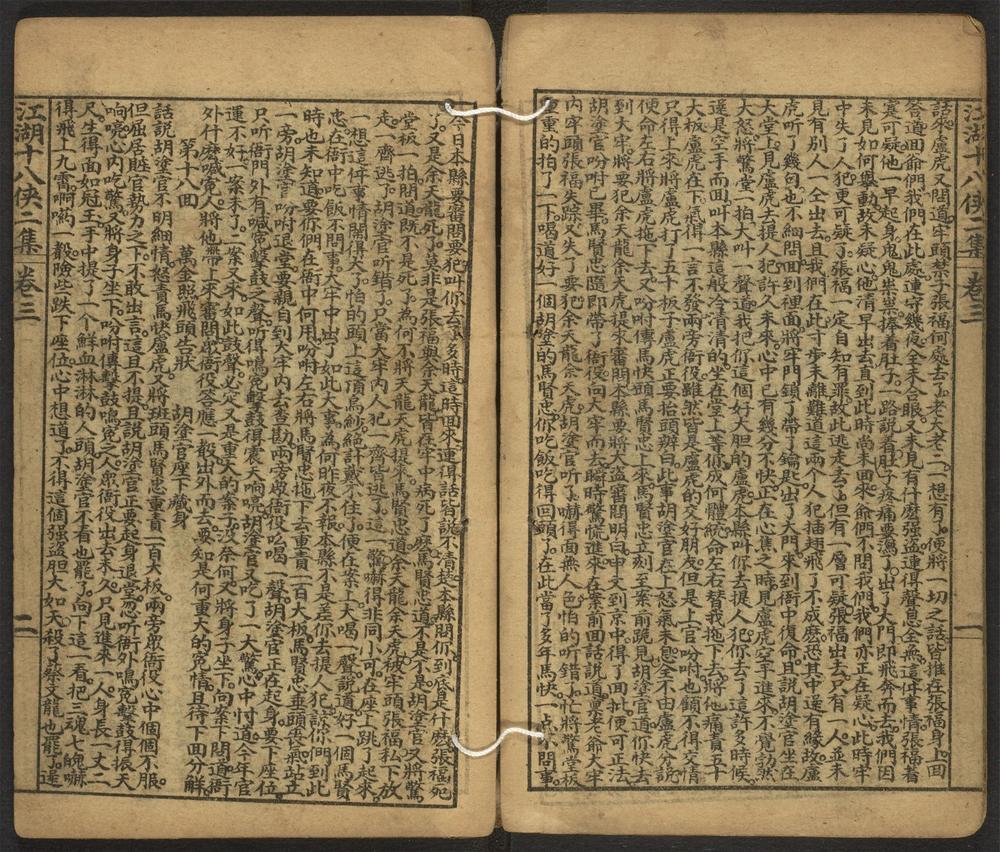 江湖十八俠二集 卷三 一
話來盧虎又問道牢頭禁子張福何處去了老大老二一想有了便將一切之話皆推在張福身上回
答道回爺們我們在此處連守幾夜全未合眼又未見有什麼强盜連得聲息全無這件事情張福着
實可疑他一早起身鬼鬼祟祟捧着肚子一路說着肚子疼痛要瀉了出了大門即飛奔而去我們因
來見如何舉動故未疑心他清早出去直到此時尚未回來爺們不問我們我們亦正在疑心此時牢
中失了人犯更可疑了張福一定自知有罪故此逃走去了但有一層可疑張福出去只有一人並未
見有別人一仝出去且我們在此寸步未離難道這兩个人犯插翅飛了不成麽恐其中還有緣故盧
虎听了幾句也不細問回到裡面將牢門鎖了帶了鑰匙出了大門來到衙中復命且說胡塗官坐在
大堂上見盧虎去提人犯許久未來心中已有幾分不快正在心焦之時見盧虎空手進來不覺勃然
大怒將驚堂一拍大叫一聲道我把你這個好大胆的盧虎本縣叫你去提人犯你去了這許多時候
還是空手而回叫本縣這般冷清清的坐在堂上等你成何體統命左右替我拖下去將他痛責五十
大板盧虎在下氣得一言不發兩旁衙役雖然皆是盧虎的交好朋友但是上官吩咐也顧不得交情
只得上來將盧虎打了五十板子盧虎正要抬頭辯白此事胡塗官在上怒氣未息全不由盧虎分說
便命左右將盧虎拖下去又吩咐傳馬快頭馬賢忠上來馬賢忠立刻至案前跪見胡塗官道你快去
到大牢將要犯余天龍余天虎提來審問本縣要將大盜審問明白申文到京中得了回批便可正法
胡塗官吩咐已畢馬賢忠隨即帶了衙役向大牢而去瞬時驚慌進來在案前回話說道稟老爺大牢
內牢頭張福失踪又失了要犯余天龍余天虎胡塗官听了嚇得面無人色怕的听錯了忙將驚堂板
重重的拍了一下喝道好一個胡塗的馬賢忠你吃飯吃得回頭了在此當了多年馬快一点不問事
今日本縣要審問要犯叫你去了多時這時回來連得話皆說不清楚本縣問你到底是什麽張福死
了又是余天龍死了莫非是張福與余天龍皆在牢中病死了麽馬賢忠道不是不是胡塗官又將驚
堂板一拍問道既不是死了為何不將天龍天虎提來馬賢忠道余天龍余天虎被牢頭張福私下放
走一齊逃了胡塗官听錯了只當大牢內人犯一齊皆逃了這一驚嚇得非同小可在座上跳了起來
一想這件事情鬧得大了怕的頭上這頂烏紗絕計戴不住了便在案上大喝一聲說道好一個馬賢
忠在衙中吃飯不問事大牢中出了如此大事為何昨夜不報本縣不是差你去提人犯諒你們到此
時也未知道要你們在衙中何用吩咐左右將馬賢忠拖下去重責一百大板馬賢忠垂頭喪氣站立
一旁胡塗官吩咐退堂要親自到大牢內去查勘兩旁衙役吆喝一聲胡塗官正在起身要下座位
只听衙門外有喊寃擊鼓之聲听得鳴寃擊鼓得震天响唬胡塗官又吃了一大驚心中忖道今年官
運不好一案未了二案又來如此鼓聲必定又是重大的案子沒奈何又將身子坐下向案下問道衙
外什麽喊寃人將他帶上來審問眾衙役答應一聲出外而去要知是何重大的寃情且待下回分解
第十八回 萬金照飛頭告狀 胡塗官座下藏身
話說胡塗官不明細情怒責馬快盧虎又將班頭馬賢忠重責一百大板兩旁眾衙役心中個個不服
但屈居賍官勢力之下不敢出言這且不提且說胡塗官正要起身退堂忽听衙外鳴寃擊鼓得振天
响唬心內吃驚又將身子坐下吩咐傳擊鼓鳴寃之人眾衙役出去未久只見進來一人身長一丈二
尺生得面如冠玉手中提了一个鮮血淋淋的人頭胡塗官不看也罷了向下這一看把三魂七魄嚇
得飛上九霄啊喲一聲險些跌下座位心中想道了不得這個强盜胆大如天殺了蔡文龍也罷了還
江湖十八俠二集 卷三 二